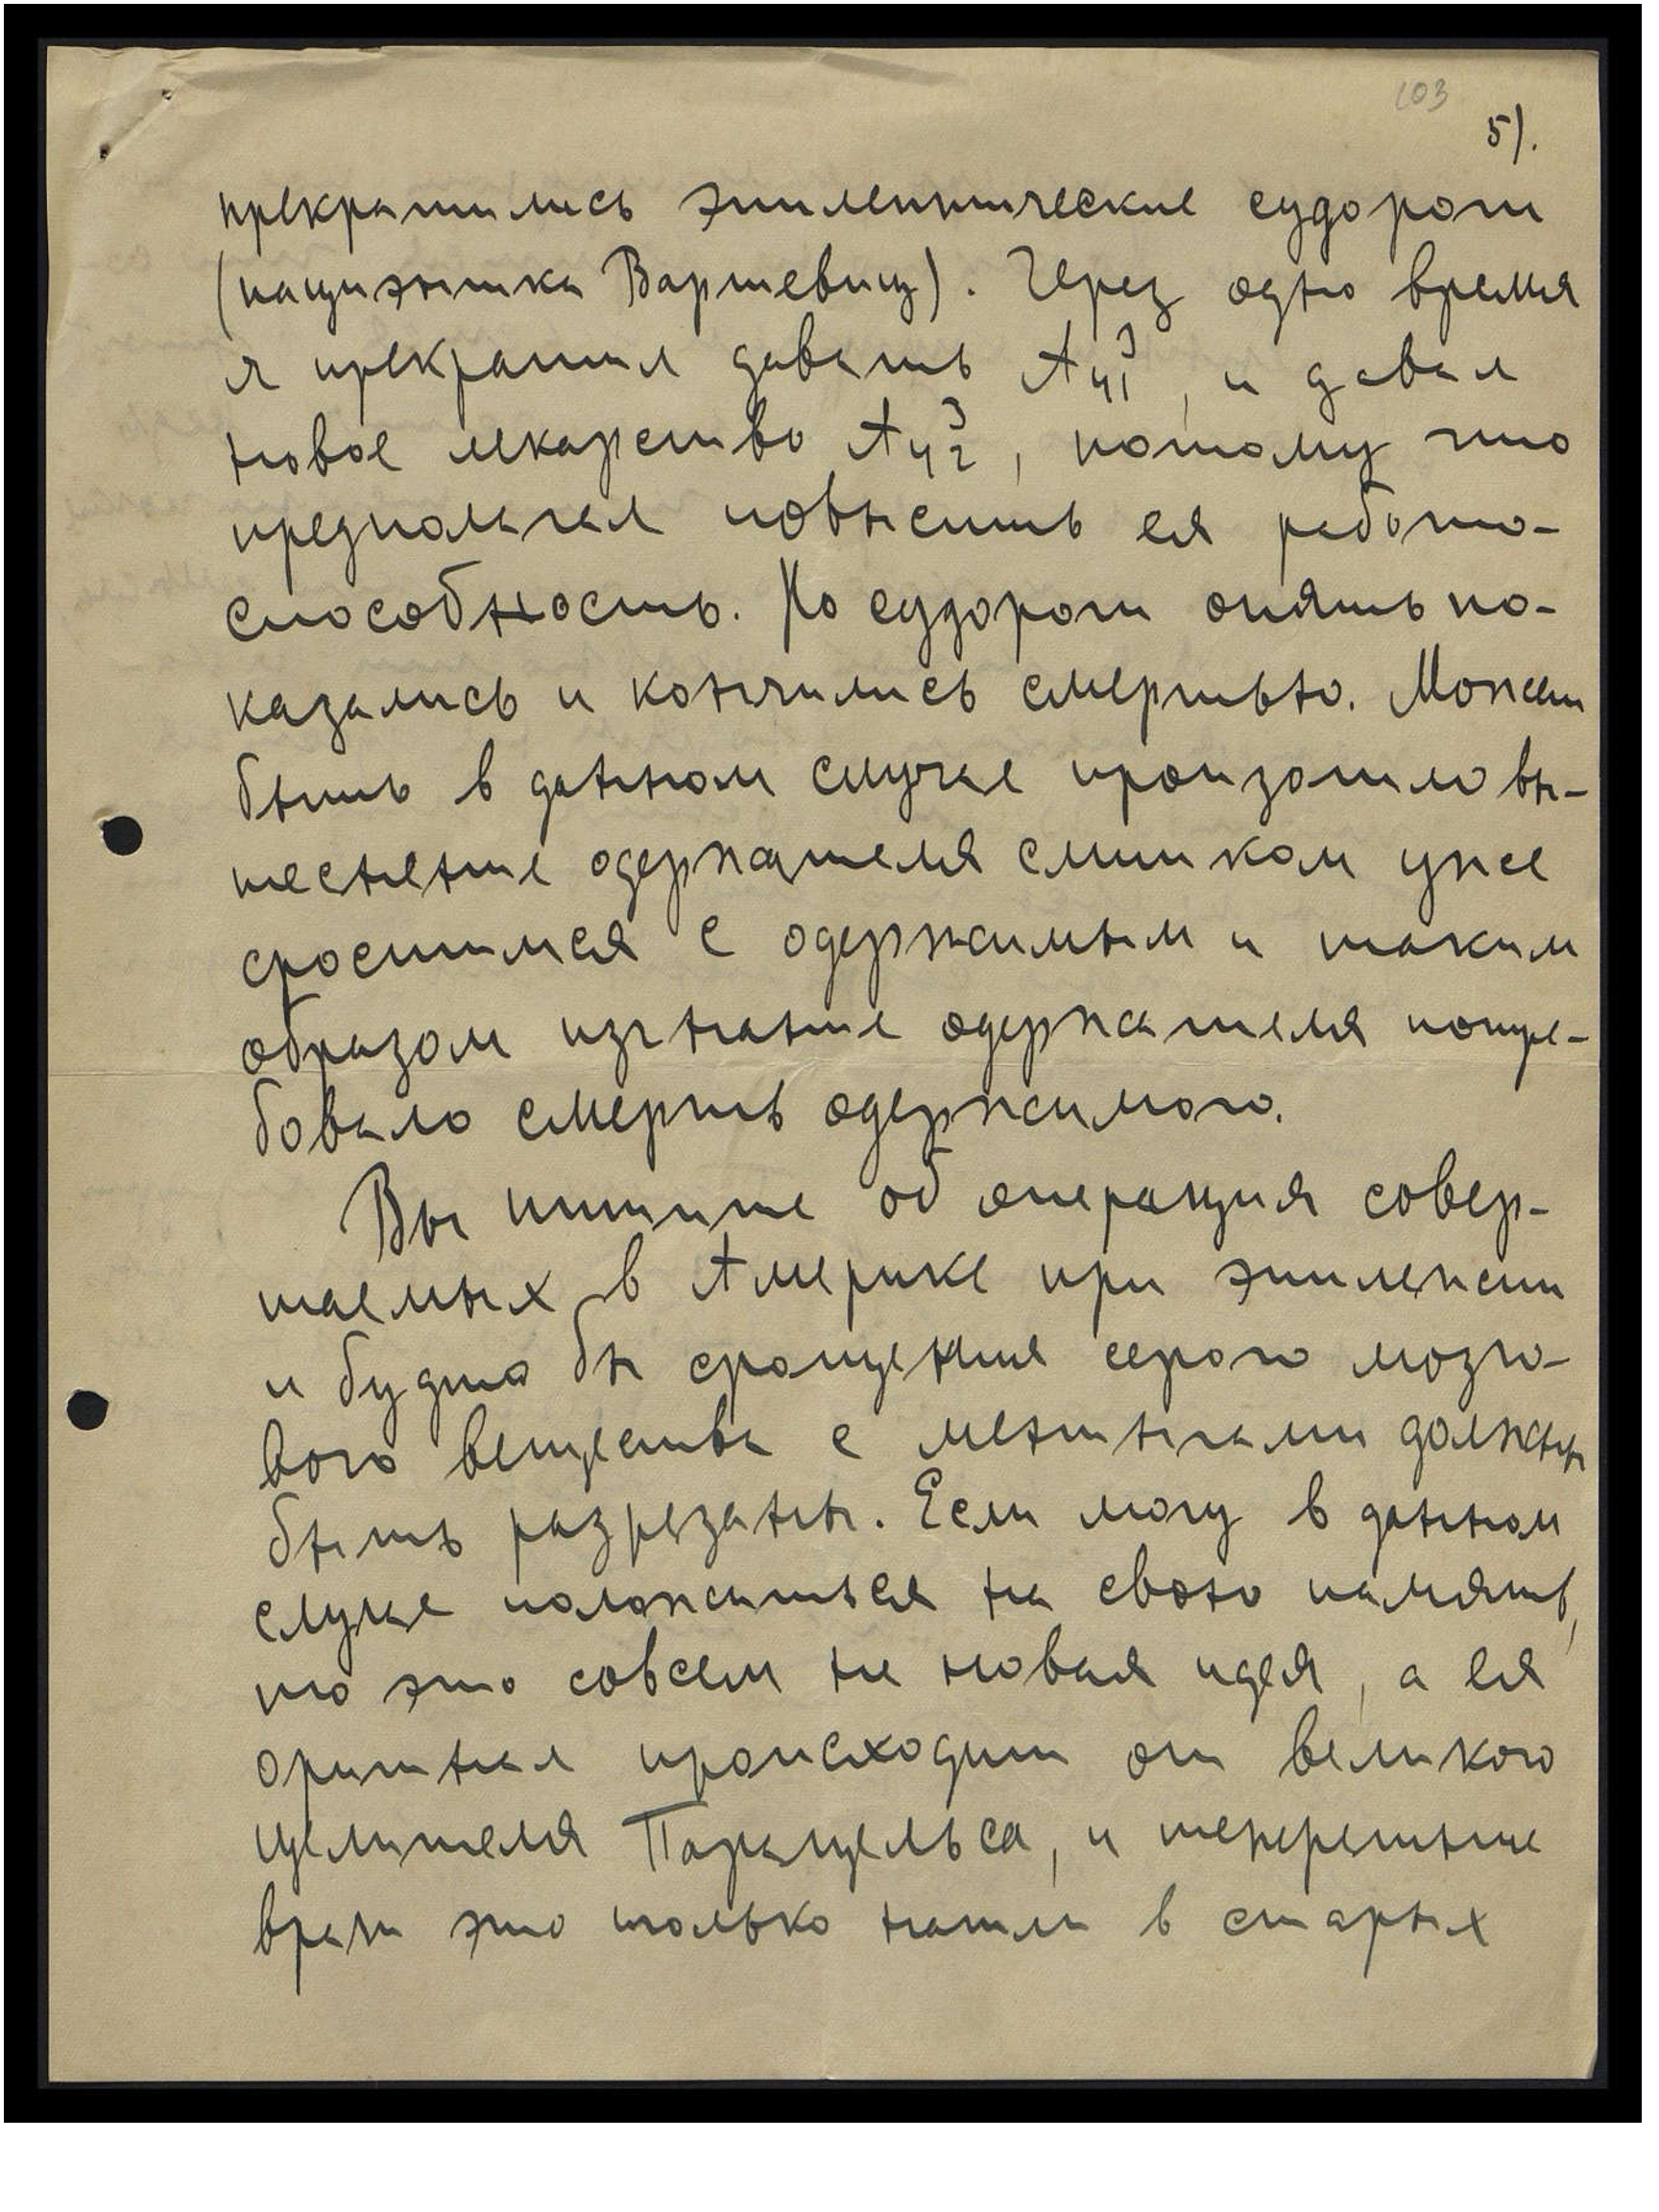 103
5).
прекратились эпилептические судороги
(пациэнтка Варшевиц). Через одно время
я прекратил давать Ач1³, и давал
новое лекарство Ач2³, потому что
предполагал повысить ея работо-
способность. Но судороги опять по-
казались и кончились смертью. Может
быть в данном случае произошло вы-
теснение одержателя слишком уже
сростимся с одержимым и таким
образом изгнание одержателя потре-
бовало смерть одержимого.
Вы пишите об операция совер-
шаемых в Америке при эпилепсии
и будто бы сращения серого мозго-
вого вещества с менингами должны
быть разрезаны. Если могу в данном
случае положиться на свою память,
то это совсем не новая идея, а ея
оригинал происходит от великого
целителя Парацельса, и теперешние
врачи это только нашли в старых